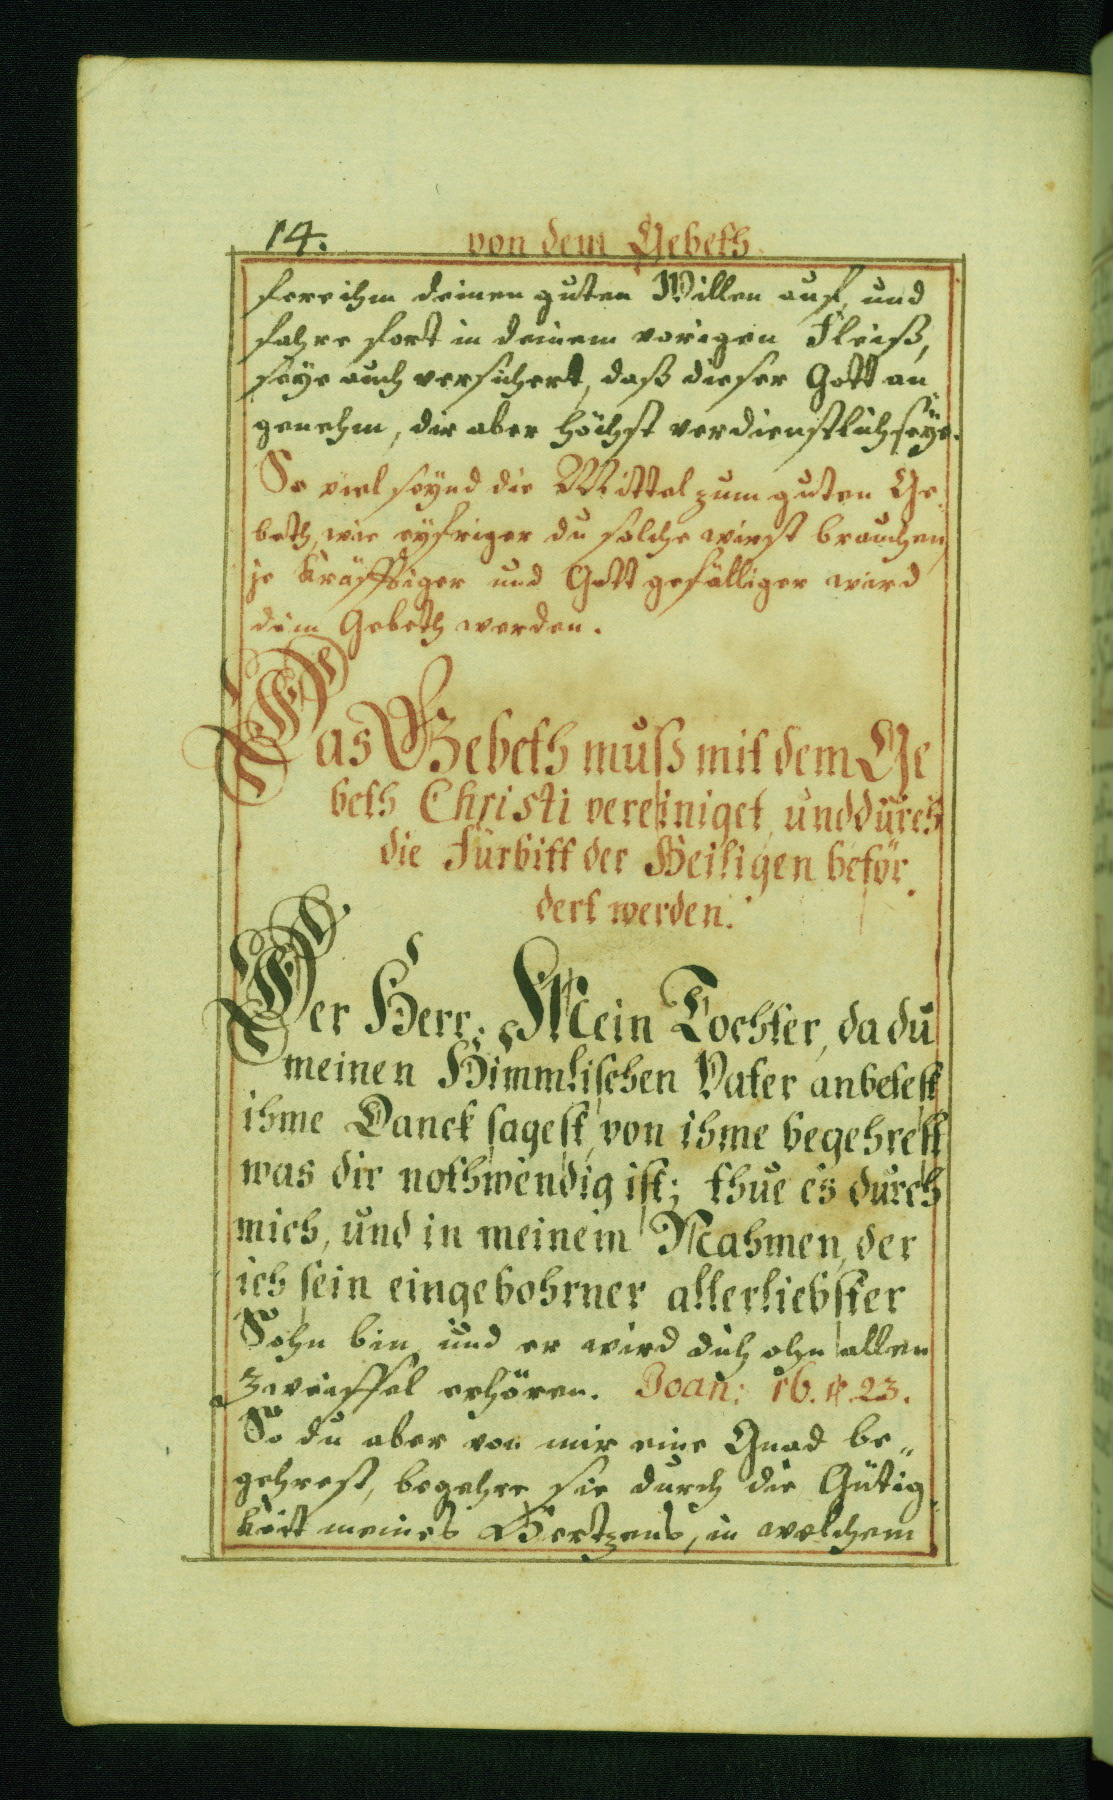 14. von dem Gebeth
fere ihm deinen guten Willen auf, und
fahre fort in deinem vorigen Fleiß,
seye auch versichert, daß dieser Gott an
genehm, dir aber höchst verdienstlich seye.
So viel seynd die Mittel zum guten Ge
beth, wie eyfriger du solche wirst brauchen,
je kräfftiger und Gott gefälliger wird
dein Gebeth werden.
Das Gebeth muß mit dem Ge
beth Christi vereiniget, und durch
die Fürbitt der Heiligen beför
dert werden.
Der Herr. Mein Tochter, da du
meinen Himmlischen Vater anbetest
ihme Danck sagest, von ihme begehrest
was dir nothwendig ist; thue es durch
mich, und in meinem Nahmen, der
ich sein eingebohrner allerliebster
Sohn bin, und er wird dich ohn allen
Zweiffel erhören. Joan: 16. v. 23.
So du aber von mir eine Gnad be„
gehrest, begehre sie durch die Gütig
keit meines Hertzens, in welchem